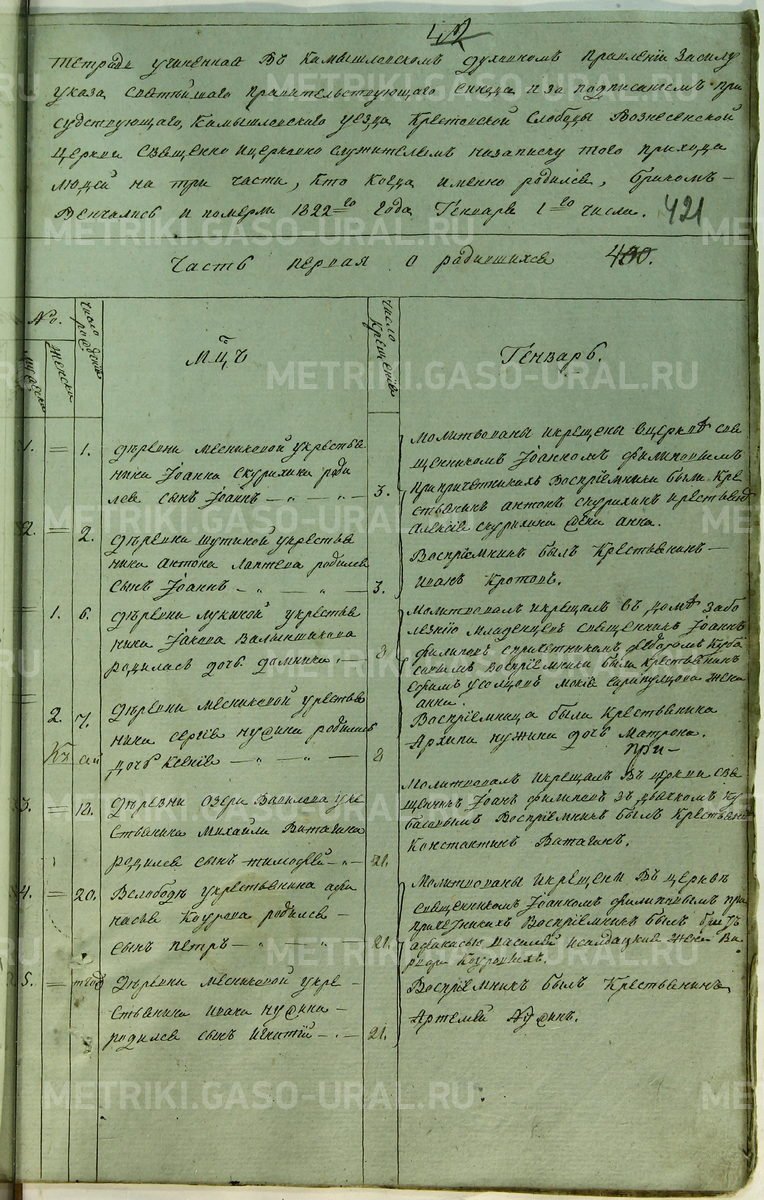 Тетрадь учиненная Въ Камышловскомъ духовномъ правленіи Засилу
указа святѣйшаго правительствующаго синода и за подписаніемъ при
судствующаго, Камышловскаго уезда Крестовской Слободы Вознесенской
церкви Священно ицерковно служителямъ назаписку того прихода
людей на три части, Кто когда именно родился, бракомъ –
Венчались и померли 1822го Года, Генваря 1го числа. 421
Часть первая о родившихся 400.
№.
мужеска
женска
число рожденія
Мцъ
число крещенія
Генварь.
1. = 1. деревни месниковой укрестья
нина Іоанна скурихина роди
лся сынъ Іоаннъ – „ – „ – „ – 3.
Молитвованы икрещены вцеркве свя
щенникомъ Іоанномъ филиповымъ
Припричетникахъ Воспріемники были Кре
стьянинъ антонъ скурихинъ икрестьян
алексея скурихина жена анна.
2. = 2. Дѣревни шутиной укрестья
нина антона Лаптева родился
сынъ Іоаннъ – „ – „ – „ 3.
Воспріемникъ былъ Крестьянинъ –
иванъ Кротовъ.
= 1. 6. Дѣревни лукиной укрестья
нина Іакова Валынщикова
родилась дочь домника „ – 8
Молитвовалъ икрещалъ въ домѣ забо
лезнію младенцевъ священникъ Іоаннъ
филиповъ спричетникомъ федоромъ Куба
совымъ воспріемники были крестьянинъ
ефимъ усолцовъ жена
анна.
= 2. 7. Дѣревни месниковой укрестья
нина сергея нужина родилась
Дочь Ксенія – „ – „ – „ – 8
Воспріемница была Крестьянина
Архипа нужина дочь Матрона.
при –
3. = 18. Дѣревни озера Вавилова укре
стьянина михайла Ватагина
родился сынъ тимофей – „ – 21.
Молитвовалъ икрещалъ Въ церкви свя
щенникъ Іоанъ филиповъ здьячкомъ Ку
басовымъ Воспріемникъ былъ Крестьянин
Константинъ Ватагинъ.
4. = 20. Вслободѣ укрестьянина афа
насья Коурова родился –
сынъ петръ – „ – „ – „ 21.
Молитвованы икрещены Въ церкве
священникомъ Іоанномъ филиповымъ при
причетникахъ Воспріемникъ былъ братъ
афанасью Василей исалдацкая жена Ва
рвара Коуровыхъ.
5. = тгож Дѣревни месниковой укре –
стьянина ивана нужина –
родился сынъ игнатій – „ – 21.
Воспріемникъ былъ Крестьянинъ
Артемей нужинъ.
METRIKI.GASO-URAL.RU
METRIKI.GASO-URAL.RU
METRIKI.GASO-URAL.RU
METRIKI.GASO-URAL.RU
METRIKI.GASO-URAL.RU
METRIKI.GASO-URAL.RU
METRIKI.GASO-URAL.RU
METRIKI.GASO-URAL.RU